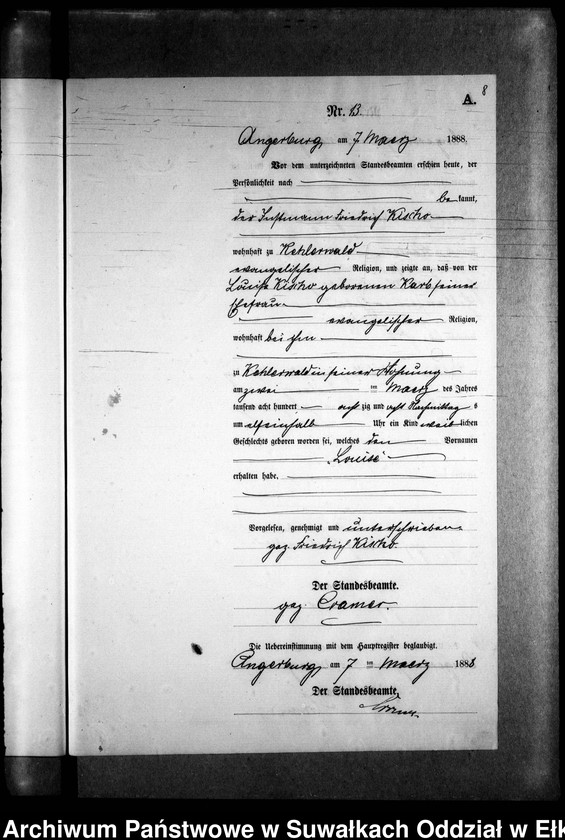 8
A.
Nr. 13.
Angerburg, am 7 Maerz 1888.
Vor dem unterzeichneten Standesbeamten erschien heute, der
Persönlichkeit nach
bekannt,
der Instmann Friedrich Kisko
wohnhaft zu Kehlerwald
evangelischer Religion, und zeigte an, daß von der
Louise Kisko geborenen Karb seiner
Ehefrau
evangelischer Religion,
wohnhaft bei ihm
zu Kehlerwald in seiner Wohnung
am zwei ten Maerz des Jahres
tausend acht hundert acht zig und acht Nachmittag s
um elfeinhalb Uhr ein Kind weiblichen
Geschlechts geboren worden sei, welches den Vornamen
"Louise"
erhalten habe.
Vorgelesen, genehmigt und unterschrieben
gez. Friedrich Kisko.
Der Standesbeamte.
gez. Cramer.
Die Uebereinstimmung mit dem Hauptregister beglaubigt.
Angerburg, am 7 ten Maerz 1888
Der Standesbeamte,
Cramer
Archiwum Państwowe w Suwałkach Oddział w Ełk